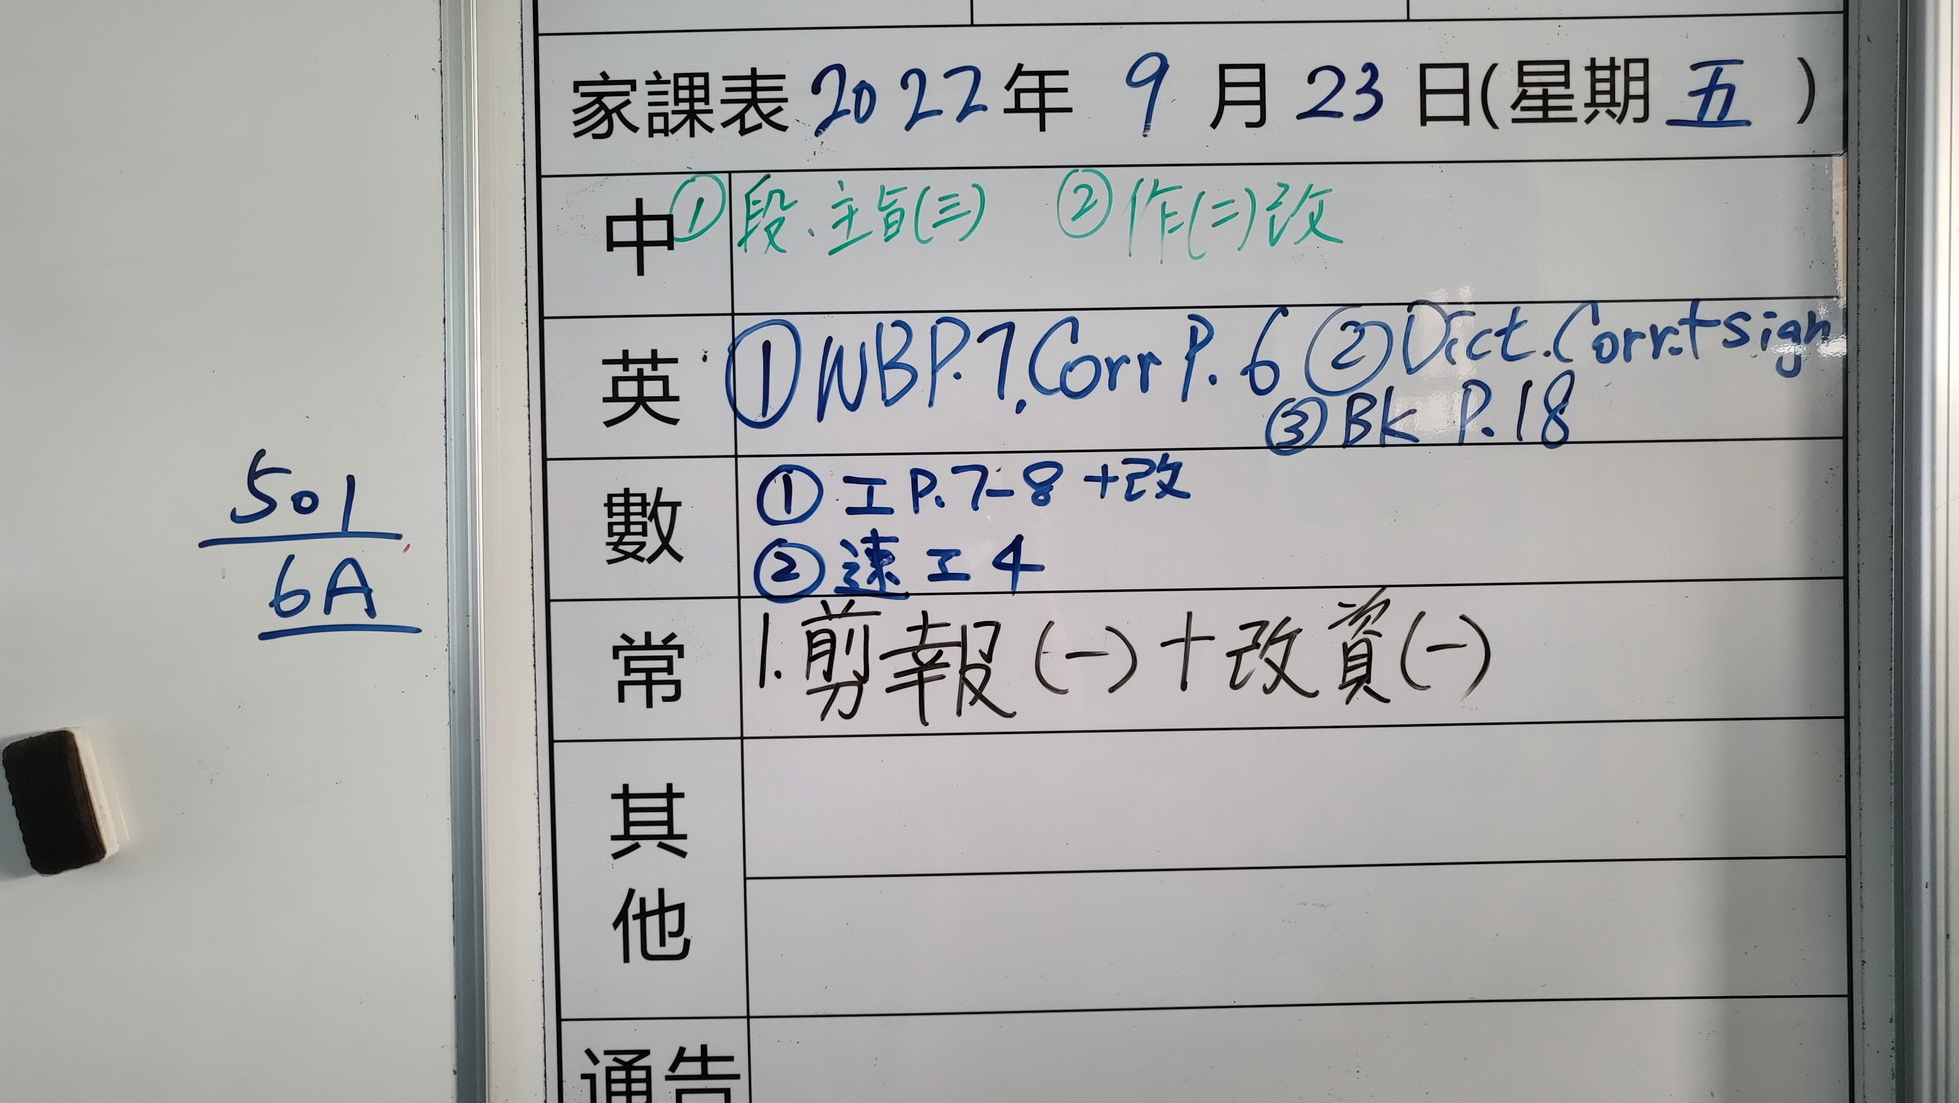 家課表 2022年 9月 23日(星期五)
中 ①段.主旨(三) ②作(二)改
英 ①WBP.7,Corr P.6 ②Dict.Corr.+sign
③BK P.18
數 ①工P.7-8+改
②速工4
常 1.剪報(一)+改資(一)
其他
通告
501
6A